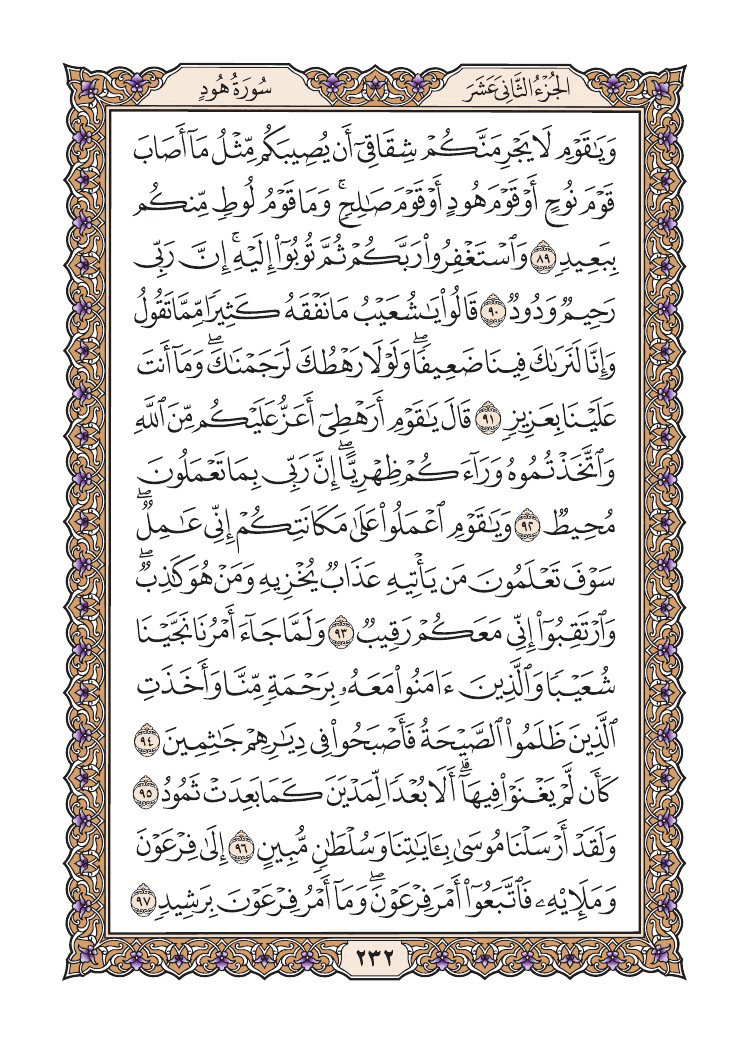 الجُزْءُ الثَّانِيَ عَشَرَ
سُورَةُ هُودٍ
وَيَٰقَوْمِ لَا يَجْرِمَنَّكُمْ شِقَاقِىٓ أَن يُصِيبَكُم مِّثْلُ مَآ أَصَابَ
قَوْمَ نُوحٍ أَوْ قَوْمَ هُودٍ أَوْ قَوْمَ صَٰلِحٍۚ وَمَا قَوْمُ لُوطٍ مِّنكُم
بِبَعِيدٍ ٨٩ وَٱسْتَغْفِرُوا۟ رَبَّكُمْ ثُمَّ تُوبُوٓا۟ إِلَيْهِۚ إِنَّ رَبِّى
رَحِيمٌ وَدُودٌ ٩٠ قَالُوا۟ يَٰشُعَيْبُ مَا نَفْقَهُ كَثِيرًا مِّمَّا تَقُولُ
وَإِنَّا لَنَرَىٰكَ فِينَا ضَعِيفًاۖ وَلَوْلَا رَهْطُكَ لَرَجَمْنَٰكَۖ وَمَآ أَنتَ
عَلَيْنَا بِعَزِيزٍ ٩١ قَالَ يَٰقَوْمِ أَرَهْطِىٓ أَعَزُّ عَلَيْكُم مِّنَ ٱللَّهِ
وَٱتَّخَذْتُمُوهُ وَرَآءَكُمْ ظِهْرِيًّاۖ إِنَّ رَبِّى بِمَا تَعْمَلُونَ
مُحِيطٌ ٩٢ وَيَٰقَوْمِ ٱعْمَلُوا۟ عَلَىٰ مَكَانَتِكُمْ إِنِّى عَٰمِلٌۖ
سَوْفَ تَعْلَمُونَ مَن يَأْتِيهِ عَذَابٌ يُخْزِيهِ وَمَنْ هُوَ كَٰذِبٌۖ
وَٱرْتَقِبُوٓا۟ إِنِّى مَعَكُمْ رَقِيبٌ ٩٣ وَلَمَّا جَآءَ أَمْرُنَا نَجَّيْنَا
شُعَيْبًا وَٱلَّذِينَ ءَامَنُوا۟ مَعَهُۥ بِرَحْمَةٍ مِّنَّا وَأَخَذَتِ
ٱلَّذِينَ ظَلَمُوا۟ ٱلصَّيْحَةُ فَأَصْبَحُوا۟ فِى دِيَٰرِهِمْ جَٰثِمِينَ ٩٤
كَأَن لَّمْ يَغْنَوْا۟ فِيهَآۗ أَلَا بُعْدًا لِّمَدْيَنَ كَمَا بَعِدَتْ ثَمُودُ ٩٥
وَلَقَدْ أَرْسَلْنَا مُوسَىٰ بِـَٔايَٰتِنَا وَسُلْطَٰنٍ مُّبِينٍ ٩٦ إِلَىٰ فِرْعَوْنَ
وَمَلَإِي۟هِۦ فَٱتَّبَعُوٓا۟ أَمْرَ فِرْعَوْنَۖ وَمَآ أَمْرُ فِرْعَوْنَ بِرَشِيدٍ ٩٧
٢٣٢